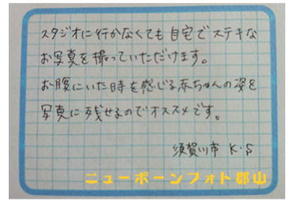 スタジオに行かなくても自宅でステキな
お写真を撮っていただけます。
お腹にいた時を感じる赤ちゃんの姿を
写真に残せるのでオススメです。
須賀川市 K・S
ニューボーンフォト郡山